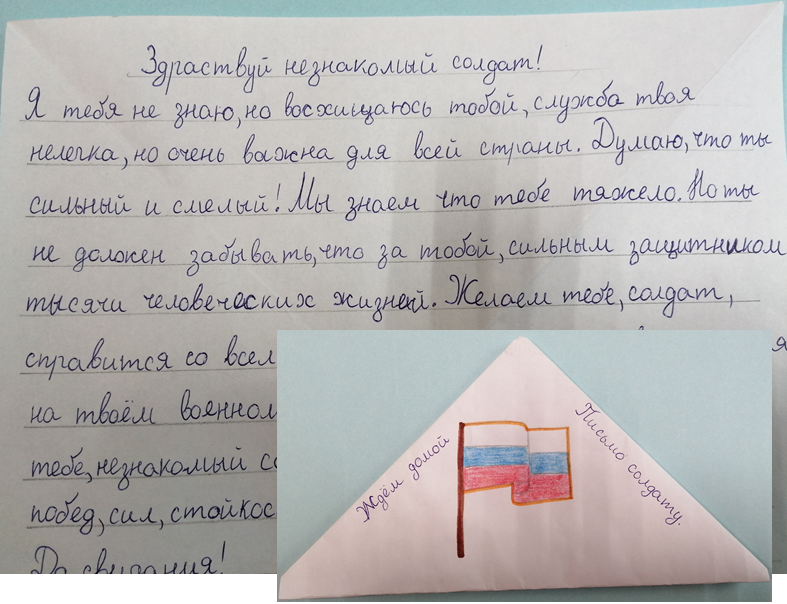 Здраствуй незнакомый солдат!
Я тебя не знаю, но восхищаюсь тобой, служба твоя
нелегка, но очень важна для всей страны. Думаю, что ты
сильный и смелый! Мы знаем что тебе тяжело. Но ты
не должен забывать, что за тобой, сильным защитником
тысячи человеческих жизней. Желаем тебе, солдат,
справится со всем
на твоём военном
тебе, незнакомый
побед, сил,
До свидания!
Ждём домой
Письмо солдату.